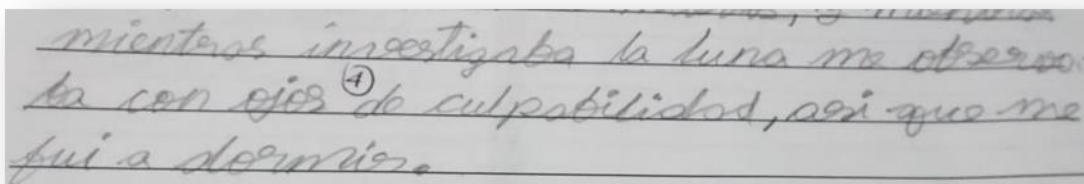 mienteras investigaba la luna me observa
ba con ojos ④ de culpabilidad, asi que me
fui a dormir.